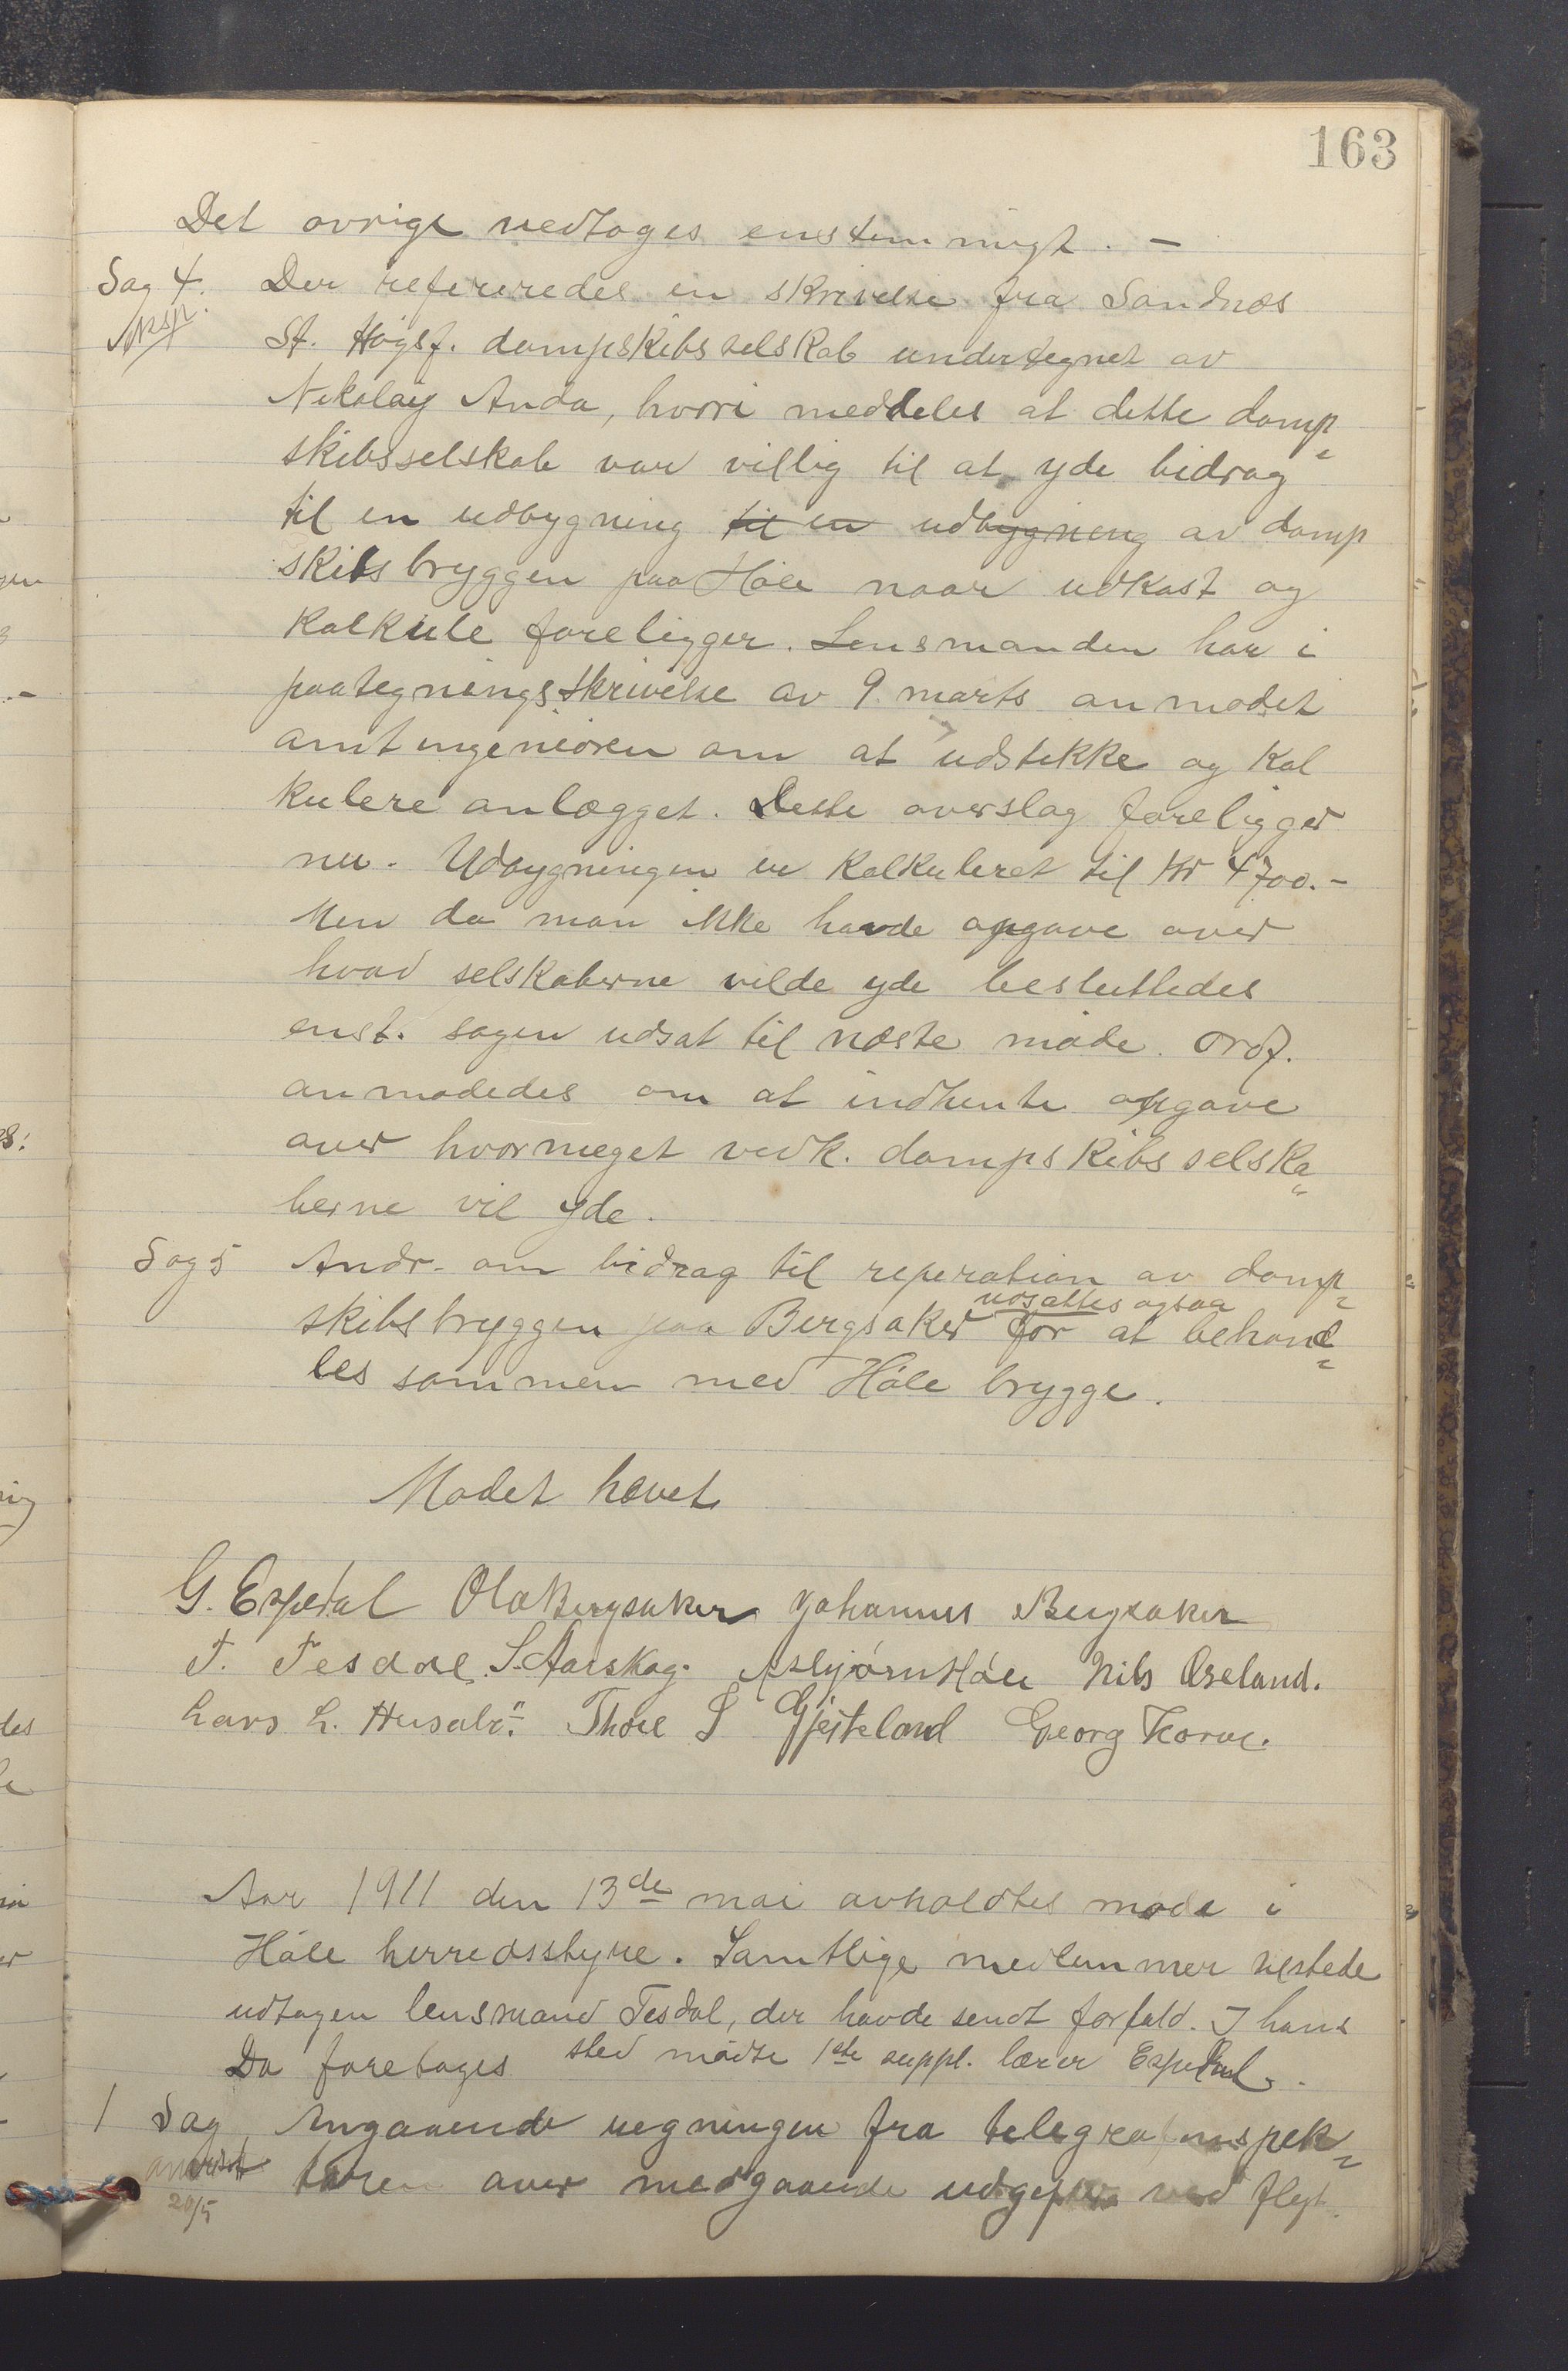 163
Det øvrige vedtoges enstemmigt. –
Sag 4. Der refereredes en skrivelse fra Sandnæs
St. Høgsf. dampskibsselskab undertegnet av
Nikolay Anda, hvori meddeles at dette damp
skibsselskab var villig til at yde bidrag
til en udbygning til en udbygning av damp
skibsbryggen paa Høle naar udkast og
kalkule foreligger. Lensmanden har i
paategningsskrivelse av 9. marts anmodet
amtingeniøren om at udstikke og kal
kulere anlægget. Dette overslag foreligger
nu. Udbygningen er kalkuleret til Kr 4700.–
Men da man ikke havde opgave over
hvad selskaberne vilde yde besluttedes
enst. sagen udsat til næste møde. Ordf.
anmodedes om at indhente opgave
over hvormeget vedk. dampskibsselska
berne vil yde.
Sag 5 Andr. om bidrag til reperation av damp
udsattes ogsaa
skibsbryggen paa Bergsaker for at behand
les sammen med Høle brygge.
Mødet hævet
G. Espedal Ola Bergsaker Johannes Bergsaker
T. Tesdal S. Aarskog. Asbjørn Høle Nils Oseland.
Lars L. Husabø. Thore S Gjesteland Georg Torve.
Aar 1911 den 13de mai avholdtes møde i
Høle herredsstyre. Samtlige medlemmer tilstede
udtagen lensmand Tesdal, der havde sendt forfald. I hans
sted mødte 1ste suppl. lærer Espedal.
Da foretages
1 Sag Angaaende regningen fra telegrafinspek
tøren over medgaaende udgifter ved flyt
20/5